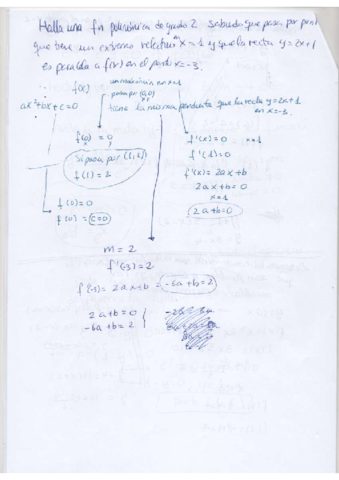 Halla una fn polinómica de grado 2. Sabiendo que pasa por
que tiene un extremo relativo en x=1 y que la recta y=2x+1
es paralela a f(x) en el punto x=-3.
f(x)
un máximo en x=1
pasa por (0,0)
tiene la misma pendiente que la recta y=2x+1
en x=-3.
ax²+bx+c=0
f(0)=0
Si pasa por
f(1)=2
f'(x)=0 x=1
f'(1)=0
f'(x)=2ax+b
2ax+b=0
x=1
2a+b=0
f(0)=0
f(0)=c=0
m=2
f'(-3)=2
f'(-3)=2ax+b=-6a+b=2
2a+b=0
-6a+b=2